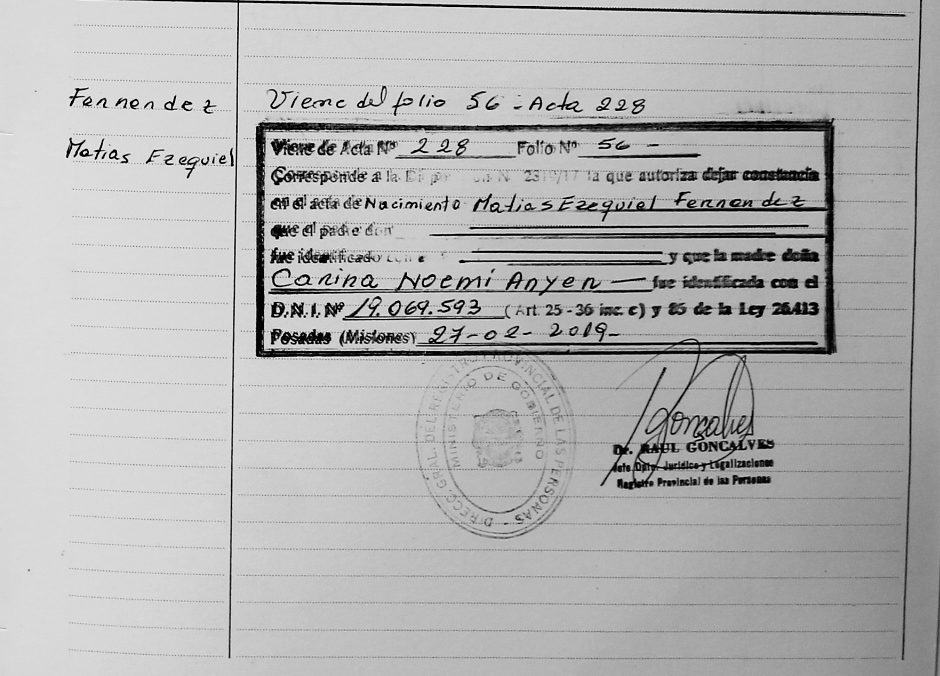 Fernendez
Matias Ezequiel
Viene del folio 56 - Acta 228
Viene de Acta Nº 228 Folio Nº 56 -
Corresponde a la 2319/17 la que autoriza dejar constancia
en el acta de Nacimiento Matias Ezequiel Fernendez
que el padre don
fue identificado con e y que la madre doña
Carina Noemi Anyen — fue identificada con el
D.N.I. Nº 19.069.593 (Art. 25 - 36 inc. c) y 85 de la Ley 26.413
Posadas (Misiones) 27-02-2019-
DIRECC. GRAL. DEL REGISTRO PROVINCIAL DE LAS PERSONAS -
MINISTERIO DE GOBIERNO
Goncalves
Dr. RAUL GONCALVES
Jefe Dpto. Jurídico y Legalizaciones
Registro Provincial de las Personas